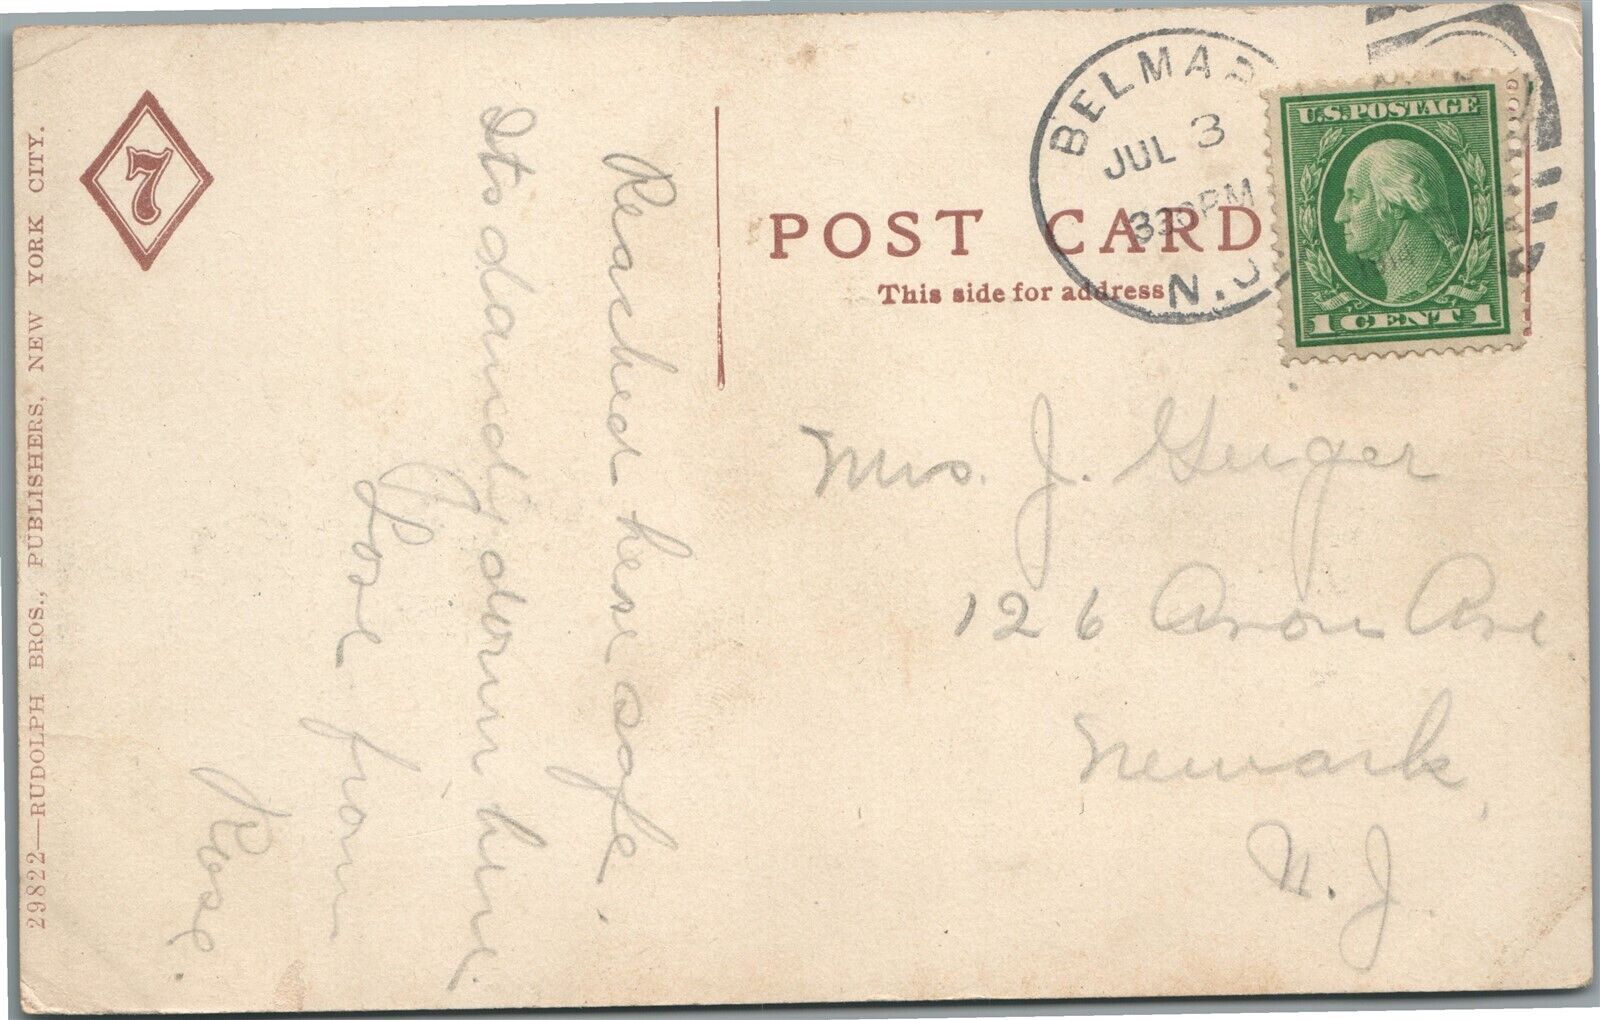 29822—RUDOLPH BROS., PUBLISHERS, NEW YORK CITY.
7
Reached here safe.
Its dandy down here.
Rose from
Rose.
POST CARD
This side for address
BELMAR
JUL 3
330 PM
N.J.
U.S. POSTAGE
1 CENT 1
Mrs. J. Geiger
126 Avon Ave
Newark,
N. J.